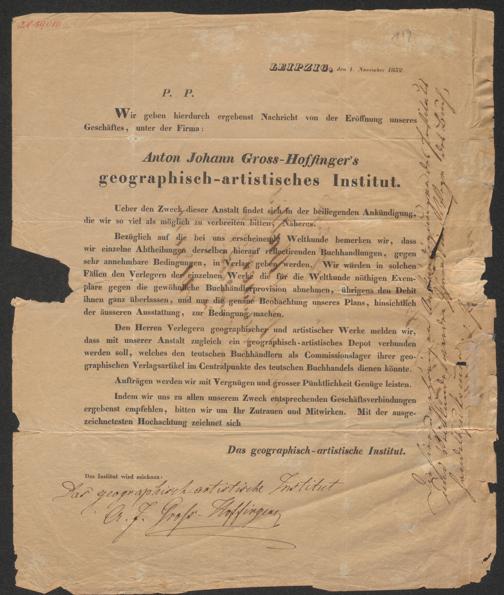 LEIPZIG, den 1. November 1832
P. P.
Wir geben hierdurch ergebenst Nachricht von der Eröffnung unseres
Geschäftes, unter der Firma:
Anton Johann Gross-Hoffinger's
geographisch-artistisches Institut.
Ueber den Zweck dieser Anstalt findet sich in der beiliegenden Ankündigung,
die wir so viel als möglich zu verbreiten bitten, Näheres.
Bezüglich auf die bei uns erscheinende Weltkunde bemerken wir, dass
wir einzelne Abtheilungen derselben hierauf reflectirenden Buchhandlungen, gegen
sehr annehmbare Bedingungen, in Verlag geben werden. Wir würden in solchen
Fällen den Verlegern der einzelnen Werke die für die Weltkunde nöthigen Exem-
plare gegen die gewöhnliche Buchhändlerprovision abnehmen, übrigens den Debit
ihnen ganz überlassen, und nur die genaue Beobachtung unseres Plans, hinsichtlich
der äusseren Ausstattung, zur Bedingung machen.
Den Herren Verlegern geographischer und artistischer Werke melden wir,
dass mit unserer Anstalt zugleich ein geographisch-artistisches Depot verbunden
werden soll, welches den teutschen Buchhändlern als Commissionslager ihrer geo-
graphischen Verlagsartikel im Centralpunkte des teutschen Buchhandels dienen könnte.
Aufträgen werden wir mit Vergnügen und grosser Pünktlichkeit Genüge leisten.
Indem wir uns zu allen unserem Zweck entsprechenden Geschäftsverbindungen
ergebenst empfehlen, bitten wir um Ihr Zutrauen und Mitwirken. Mit der ausge-
zeichnetesten Hochachtung zeichnet sich
Das geographisch-artistische Institut.
Das Institut wird zeichnen:
Das geographisch-artistische Institut
A. J. Gross-Hoffinger